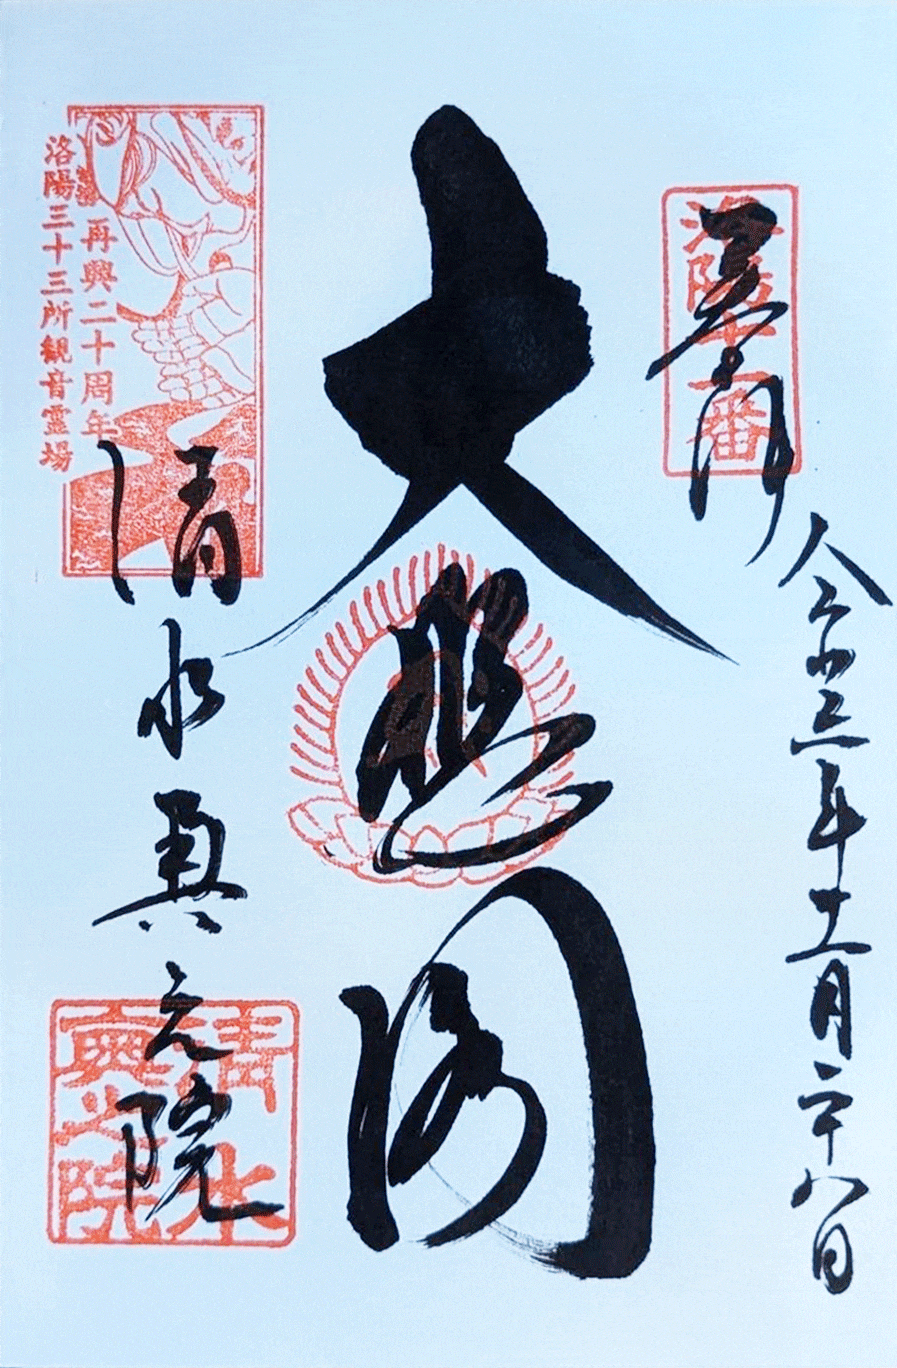 奉拝
洛陽十一番
令和三年十二月二十八日
大悲閣
再興二十周年
洛陽三十三所観音霊場
清水奥之院
清水
奥之院